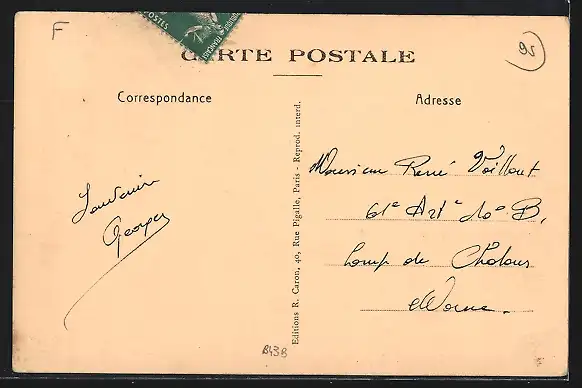 F
95
POSTES
CARTE POSTALE
Correspondance
Adresse
Souvenir
Georges
Editions R. Caron, 40, Rue Pigalle, Paris - Reprod. interd.
Monsieur René Vaillant
61e Arte 10e B.
Camp de Chalons
Marne.
B43B